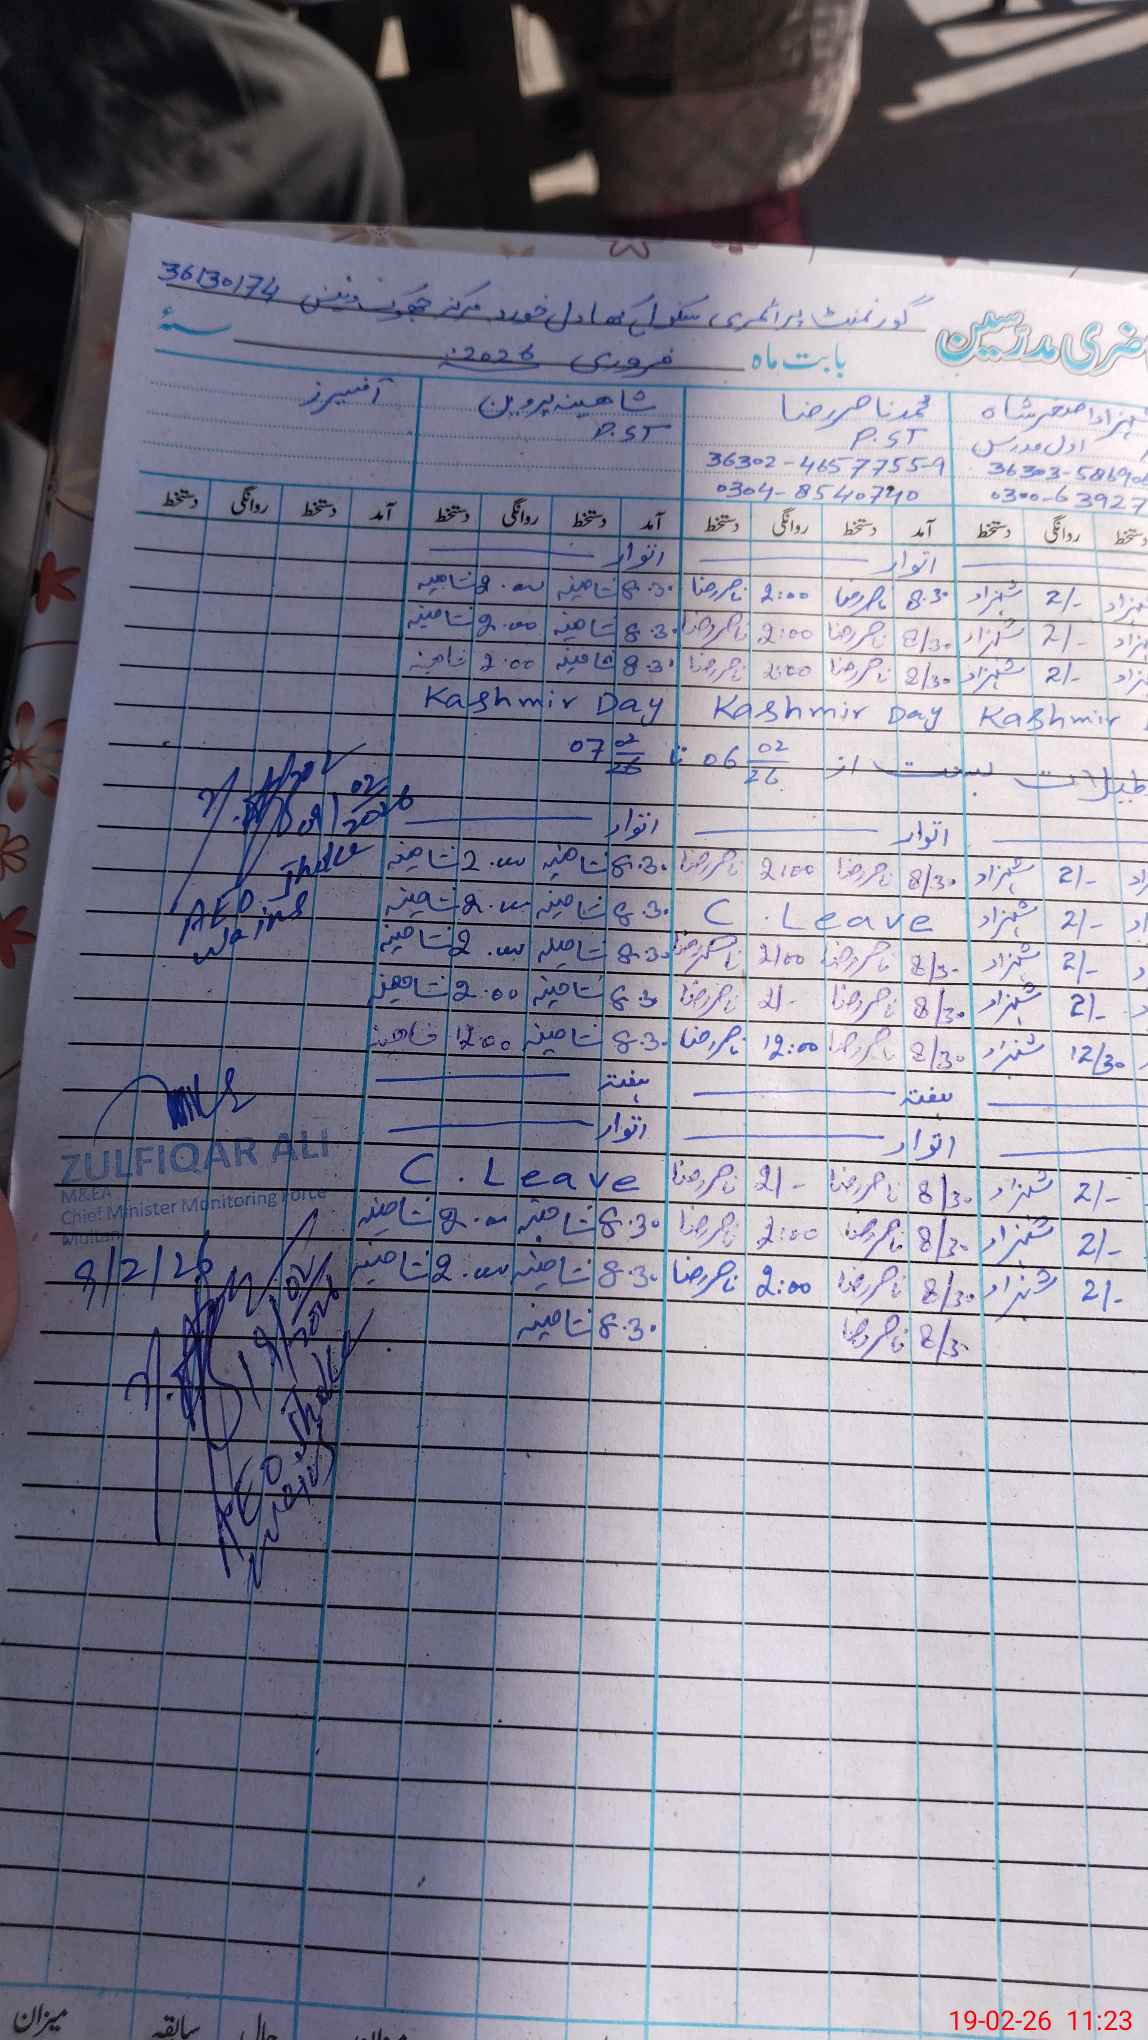 36130174 گورنمنٹ پرائمری سکول
ضری مدرسین
بابت ماہ فروری 2026 سنہ
محمد ناصر رضا شاہینہ پروین آفیسرز
اول مدرس P.ST P.ST
36302-4657755-9
0304-8540740
دستخط روانگی دستخط آمد دستخط روانگی دستخط آمد دستخط روانگی دستخط آمد دستخط روانگی دستخط
اتوار اتوار
شہزاد 2/- شہزاد 8.30 ناصر رضا 2:00 ناصر رضا 8.30 شاہینہ 2.00 شاہینہ
شہزاد 2/- شہزاد 8/30 ناصر رضا 2:00 ناصر رضا 8.30 شاہینہ 2.00 شاہینہ
شہزاد 2/- شہزاد 8/30 ناصر رضا 2:00 ناصر رضا 8.30 شاہینہ 2:00 شاہینہ
Kashmir Day Kashmir Day Kashmir
از 06 02/26 تا 07 02/26
اتوار اتوار
2/- شہزاد 8/30 ناصر رضا 2:00 ناصر رضا 8.30 شاہینہ 2.00 شاہینہ
2/- شہزاد C. Leave 8.30 شاہینہ 2.00 شاہینہ
2/- شہزاد 8/30 ناصر رضا 2/00 ناصر رضا 8.30 شاہینہ 2.00 شاہینہ
2/- شہزاد 8/30 ناصر رضا 2/- ناصر رضا 8.30 شاہینہ 2.00 شاہینہ
12/30 شہزاد 8/30 ناصر رضا 12:00 ناصر رضا 8.30 شاہینہ 12:00 شاہینہ
ہفتہ ہفتہ
اتوار اتوار
2/- شہزاد 8/30 ناصر رضا 2/- ناصر رضا C. Leave
2/- شہزاد 8/30 ناصر رضا 2:00 ناصر رضا 8.30 شاہینہ 2.00 شاہینہ
2/- شہزاد 8/30 ناصر رضا 2:00 ناصر رضا 8.30 شاہینہ 2.00 شاہینہ
8/30 ناصر رضا 8.30 شاہینہ
02/2026
AEO
ZULFIQAR ALI
M&EA
Chief Minister Monitoring Force
Multan
19/02/2026
AEO
میزان سابقہ حال
19-02-26 11:23